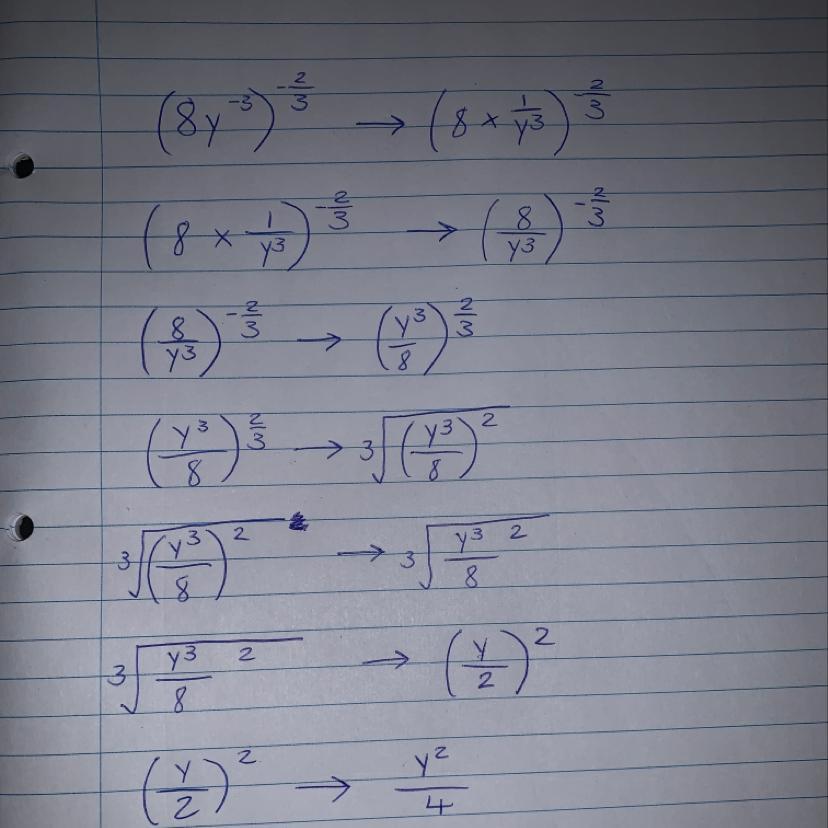 (8y⁻³)^(-2/3) → (8 × 1/y³)^(-2/3)
(8 × 1/y³)^(-2/3) → (8/y³)^(-2/3)
(8/y³)^(-2/3) → (y³/8)^(2/3)
(y³/8)^(2/3) → ³√((y³/8)²)
³√((y³/8)²) → ³√(y³/8 ²)
³√(y³/8 ²) → (y/2)²
(y/2)² → y²/4